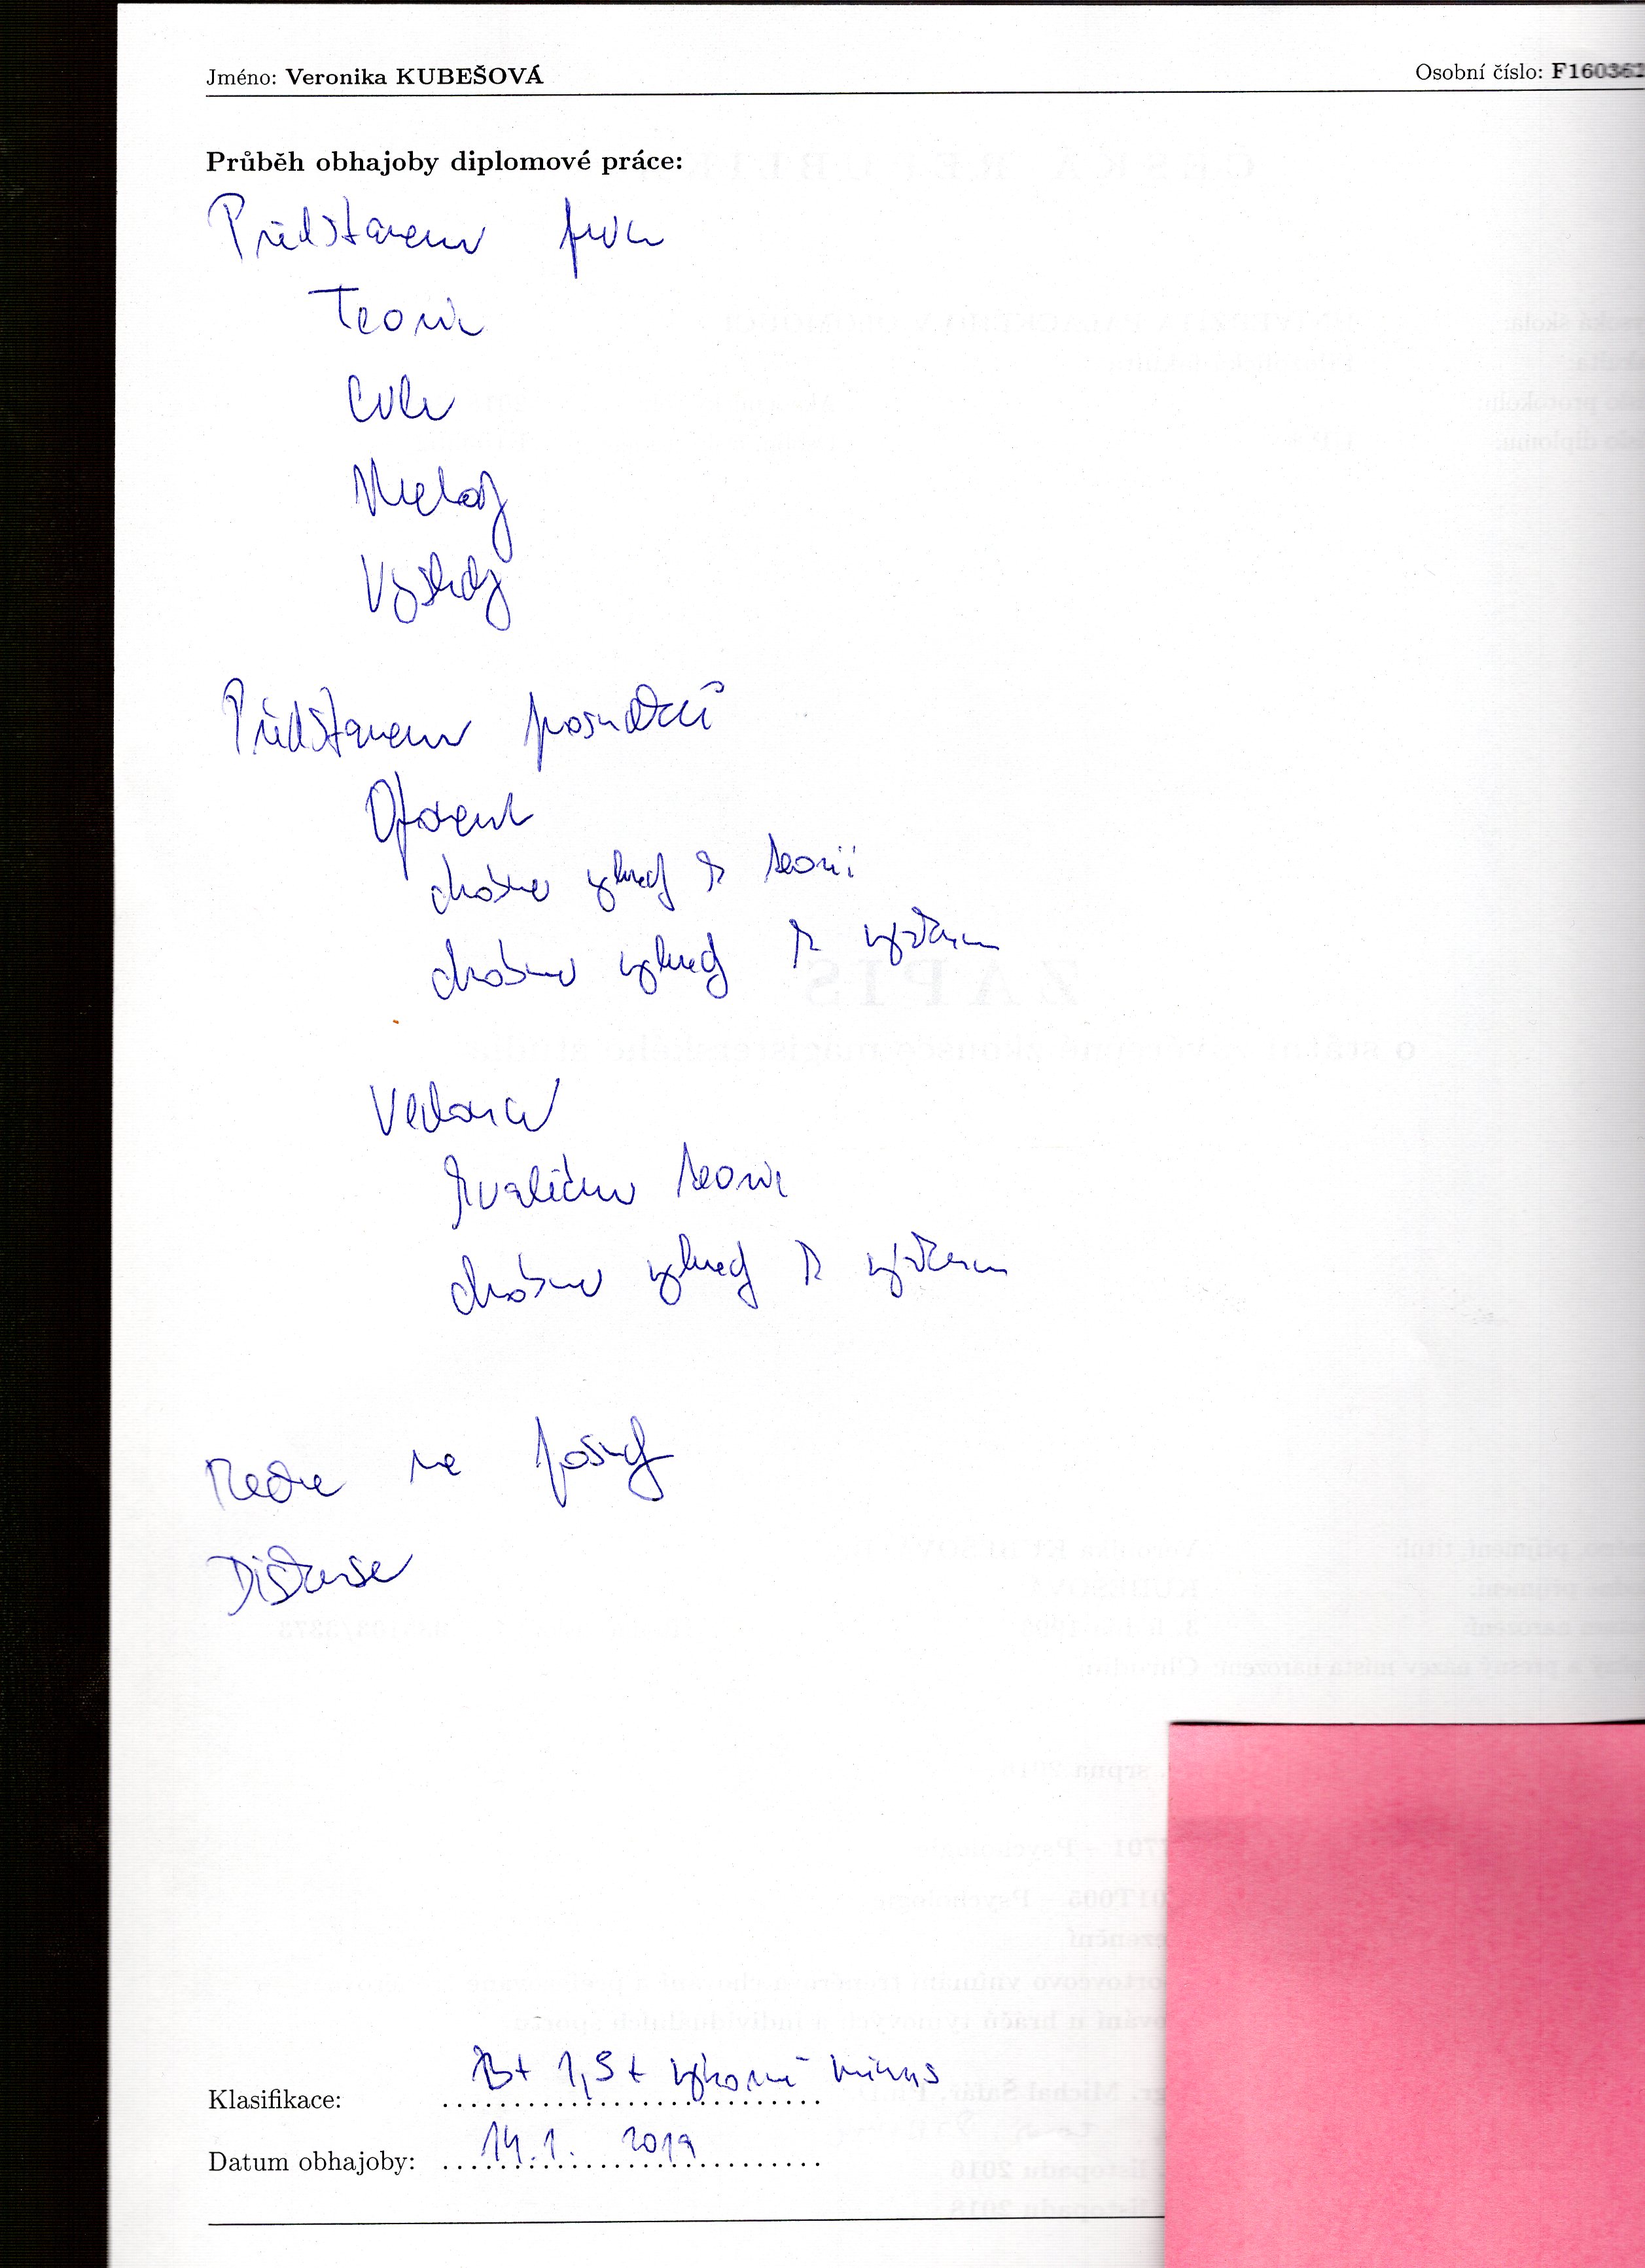 Jméno: Veronika KUBEŠOVÁ Osobní číslo: F160362
Průběh obhajoby diplomové práce:
Představení práce
Teorie
Cíle
Metody
Výsledky
Představení posudků
Oponent
drobné výhrady k teorii
drobné výhrady k výzkumu
Vedoucí
kvalitní teorie
drobné výhrady k výzkumu
Reakce na posudky
Diskuse
Klasifikace: B+ 1,5 + výborně minus
Datum obhajoby: 14.1. 2019